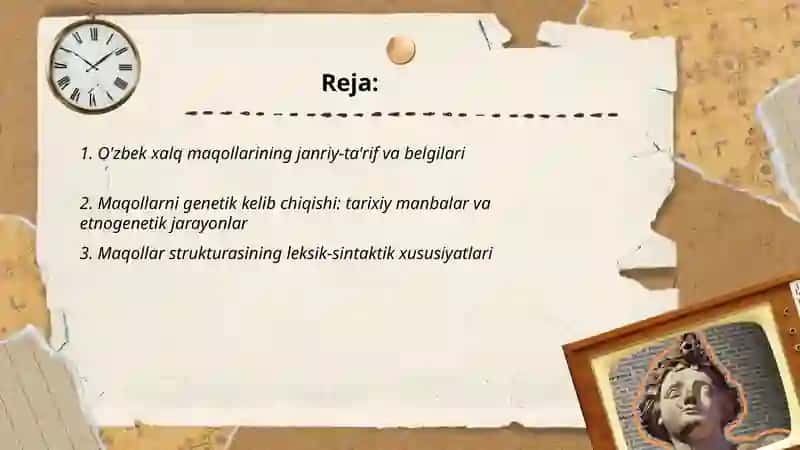 Reja:
1. O'zbek xalq maqollarining janriy-ta'rif va belgilari
2. Maqollarni genetik kelib chiqishi: tarixiy manbalar va
etnogenetik jarayonlar
3. Maqollar strukturasining leksik-sintaktik xususiyatlari